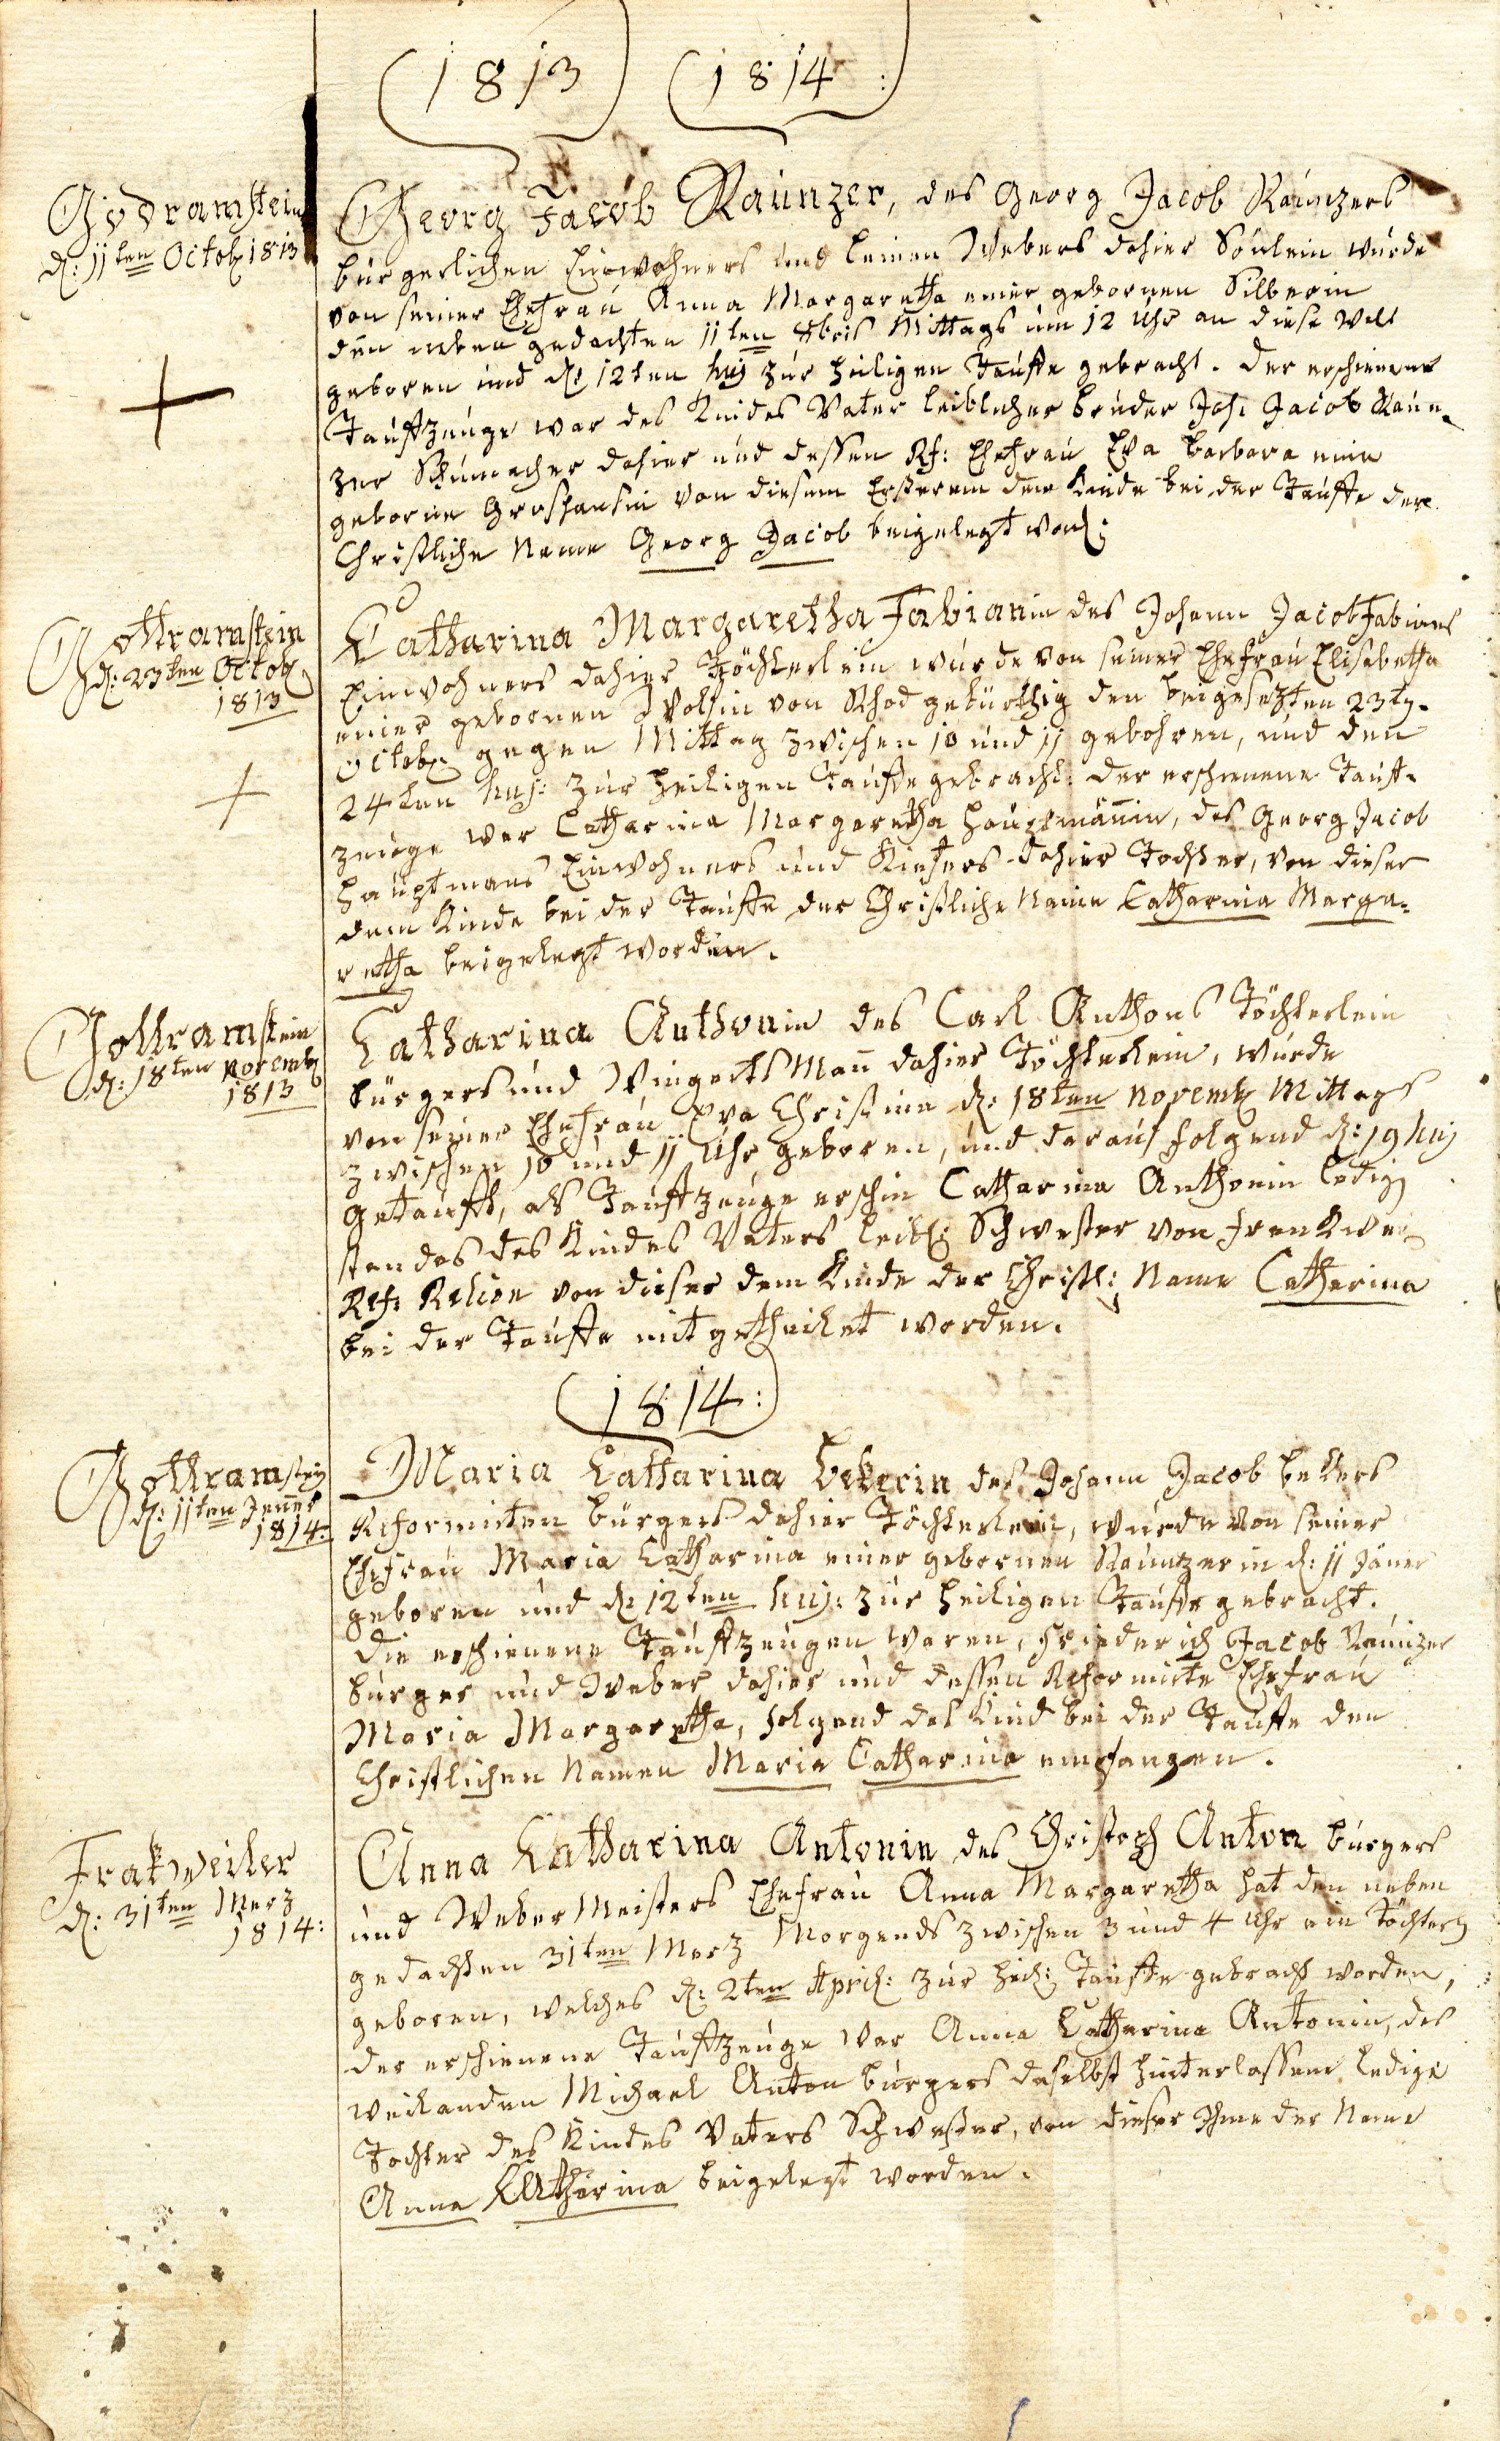 1813 1814:
Godramstein
d: 11ten Octob 1813
Georg Jacob Raunzer, des Georg Jacob Raunzers
bürgerlichen Einwohners und leinen Webers dahier Sönlein wurde
von seiner Ehefrau Anna Margaretha einer gebornen Silberin
den neben gedachten 11ten 8bris Mittags um 12 Uhr an diese Welt
geboren und d: 12ten huj zur heiligen Tauffe gebracht. der erschienene
Tauffzeuge war des Kindes Vater leiblicher Bruder Joh: Jacob Raun-
zer Schumacher dahier und dessen Rf: Ehefrau Eva Barbara eine
geborne von diesem Ersterem dem Kinde bei der Tauffe der
Christliche Name Georg Jacob beigelegt word:
Gottramstein
d: 23ten Octob
1813
Catharina Margaretha Fabianin des Johann Jacob Fabians
Einwohners dahier Töchterlein wurde von seiner Ehefrau Elisabetha
einer gebornen Wolfin von Rhod gebürthig den beigesetzten 23ten
Octob gegen Mittag zwischen 10 und 11 gebohren, und den
24ten huj: zur heiligen Tauffe gebracht: der erschienene Tauf-
zeuge war Catharina Margaretha Hauptmännin, des Georg Jacob
Hauptmans Einwohners und Kiefers dahier Tochter, von dieser
dem Kinde bei der Tauffe der Christliche Name Catharina Marga-
retha beigelegt worden.
Gottramstein
d: 18ten Novemb
1813
Catharina Anthonin des Carl Anthons Töchterlein
bürgers und Wingerts Man̄ dahier Töchterlein, wurde
von seiner Ehefrau Eva Christina d: 18ten Novemb Mittags
zwischen 10 und 11 Uhr geboren, und darauf folgend d: 19 huj
getaufft, als Tauffzeuge erschin Catharina Anthonin ledig
standes des Kindes Vaters leibl: Schwester von Frankwei
Ref: Relion von dieser dem Kinde der Christl: Name Catharina
bei der Tauffe mit getheilet worden.
1814:
Gottramstein
d: 11ten Jen̄er
1814:
Maria Catharina Bekerin des Johann Jacob Bekers
Reformirten bürgers dahier Töchterlein, wurde von seiner
Ehefrau Maria Catharina einer gebornen Raunzerin d: 11 Jäner
geboren und d: 12ten huj: zur heiligen Tauffe gebracht.
Die erschienene Tauffzeugen waren, Friederich Jacob Raunzer
bürger und Weber dahier und dessen Reformirte Ehefrau
Maria Margaretha, folgend das Kind bei der Tauffe den
Christlichen Namen Maria Catharina empfangen.
Frakweiler
d: 31ten Merz
1814:
Anna Catharina Antonin des Christoph Anton bürgers
und Weber Meisters Ehefrau Anna Margaretha hat den neben
gedachten 31ten Merz Morgends zwischen 3 und 4 Uhr ein Töchterl
geboren, welches d: 2ten April: zur heil: Tauffe gebracht worden,
der erschienene Tauffzeuge war Anna Catharina Antonin, des
weilanden Michael Anton bürgers daselbst hinterlassene ledige
Tochter des Kindes Vaters Schwester, von dieser Ihme der Name
Anna Catharina beigelegt worden.